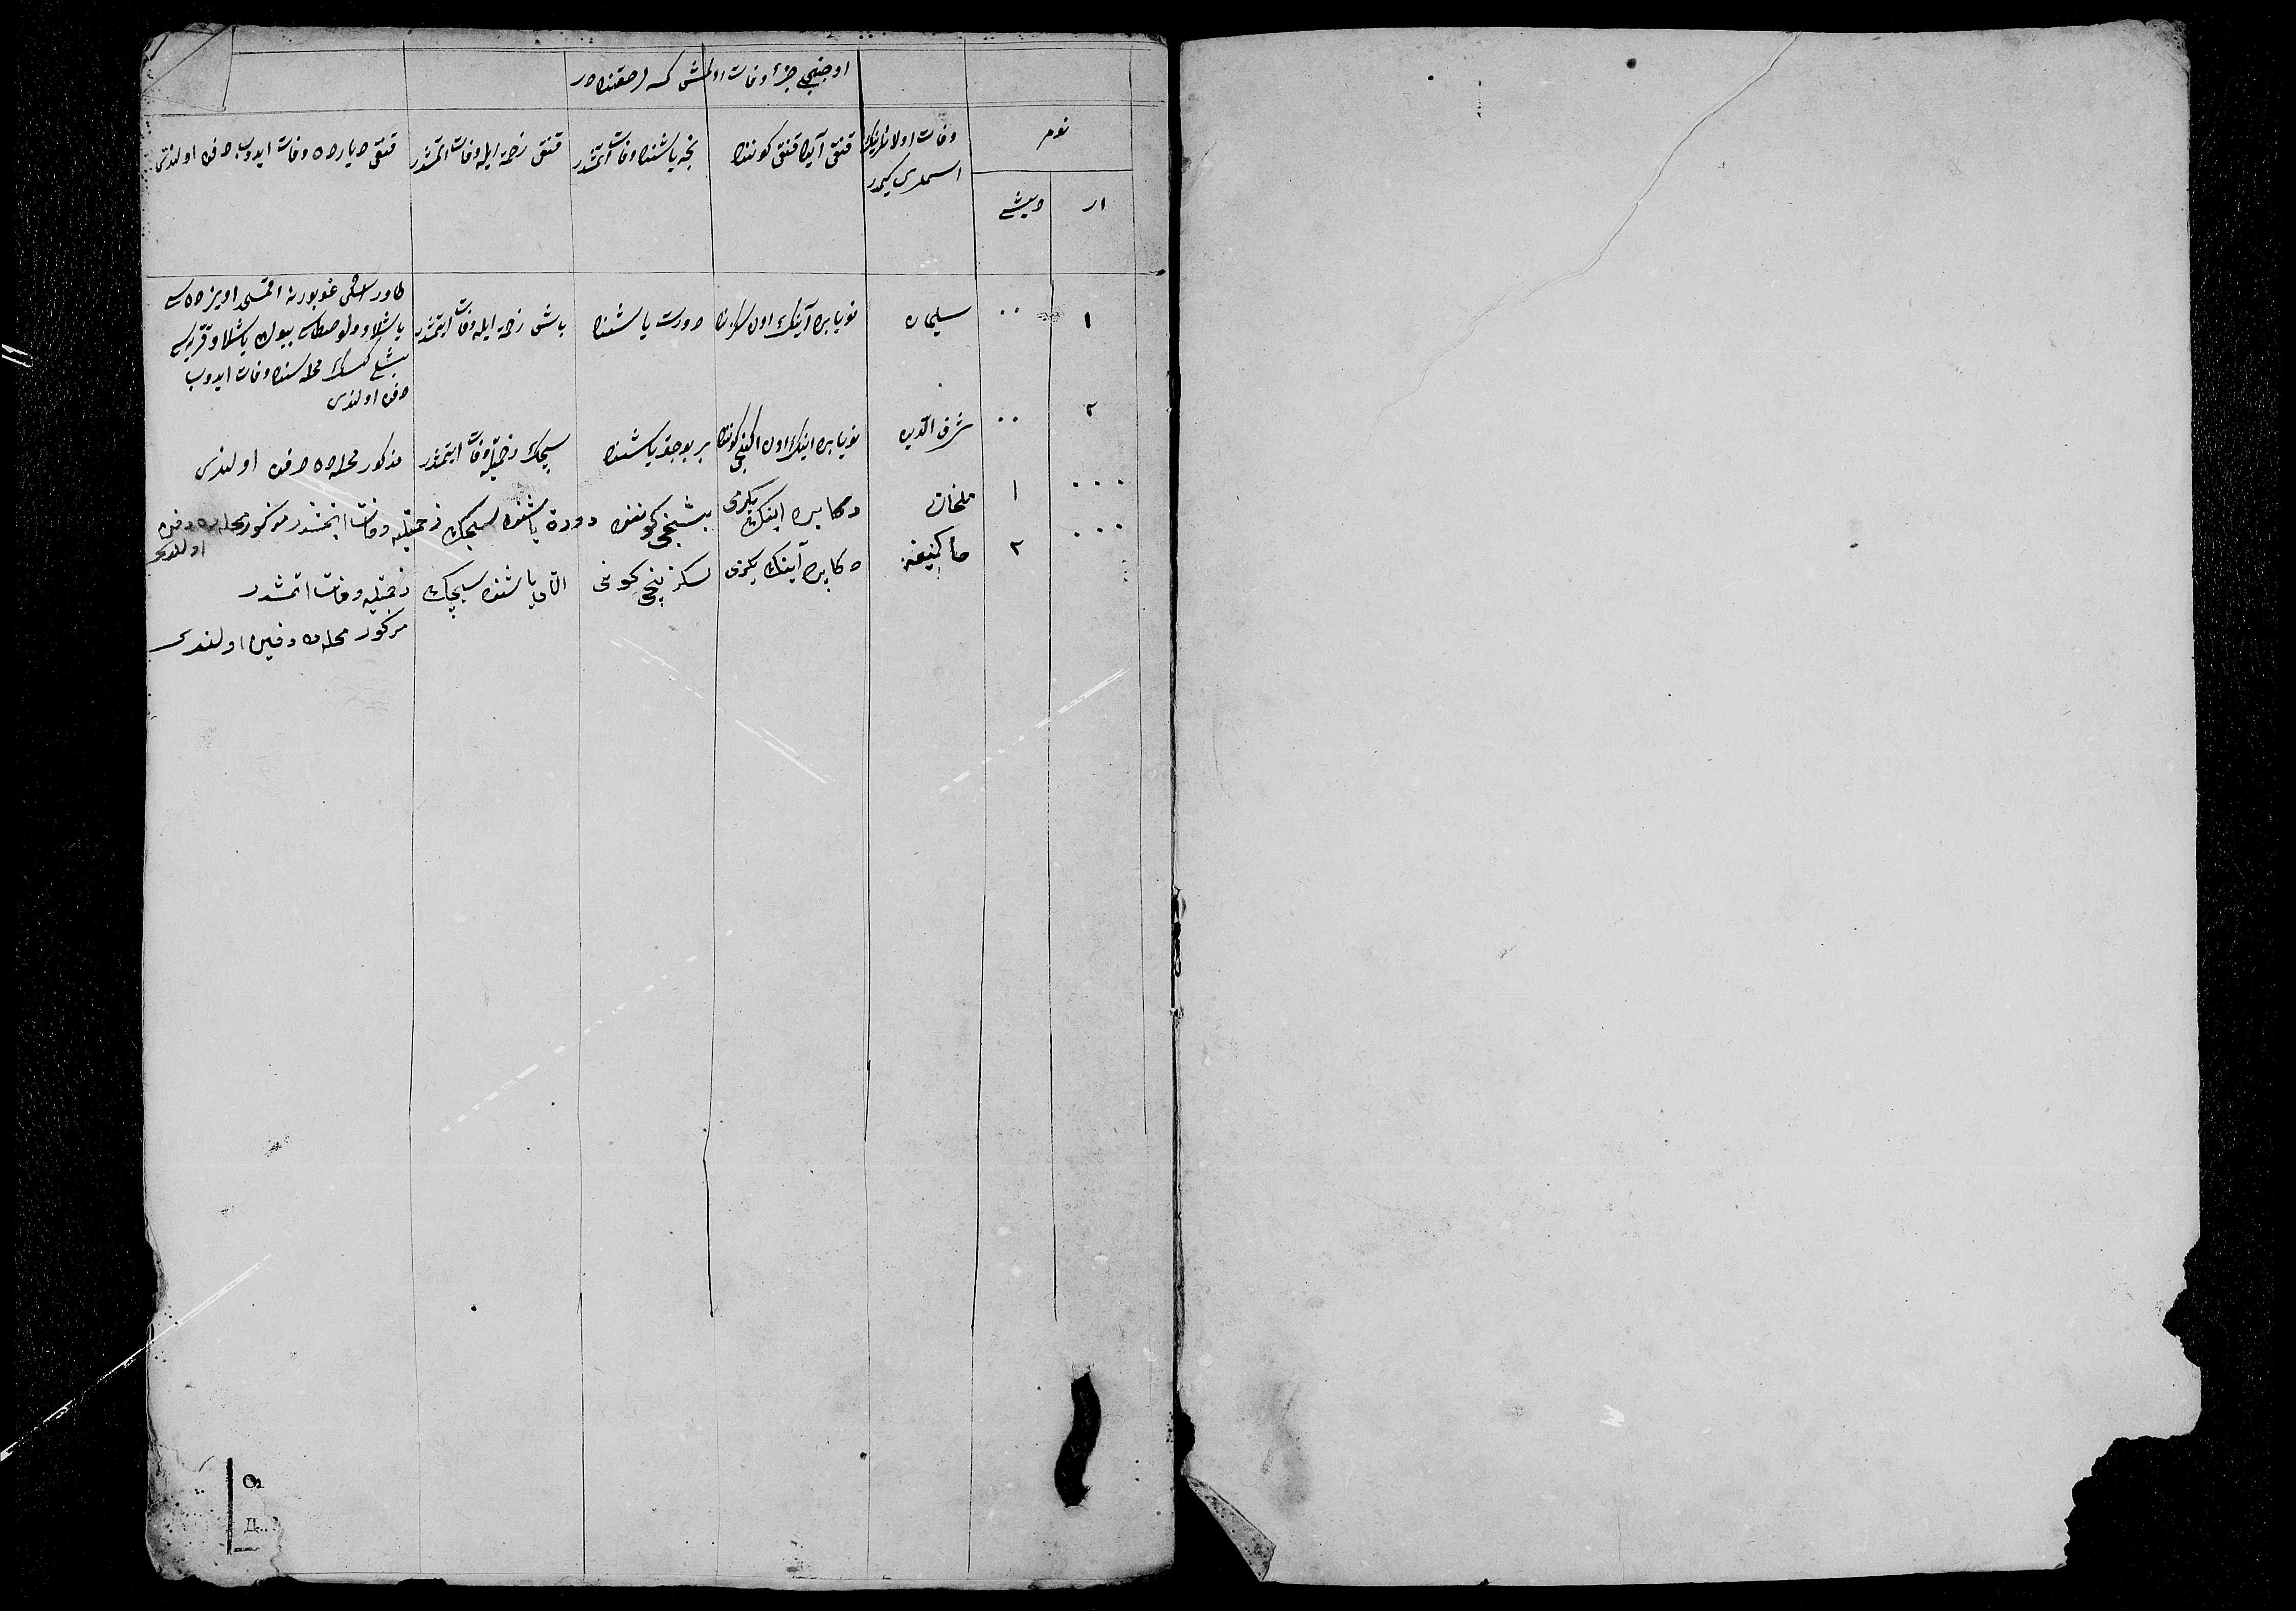 اوچنجی جزء وفات اولمش کمسه لر حقنده در
نومر
ار
دیشی
وفات اولانلرنیڭ اسملری کیمدر
قنغی آیده قنغی کوننده
نچه یاشنده وفات ایتمشدر
قنغی زحمة ایله وفات ایتمشدر
قنغی دیارده وفات ایدوب دفن اولندی
۱ ٠٠ سلیمان نویابر آینڭ اون دورت یاشنده باش زحمة ایله وفات ایتمشدر
طاوریسکی غوبورنه اویزده سی
یاشلاو ولوصطی بیوك یاشلاو قریه سی
محله سنده وفات ایدوب
دفن اولندی
۲ ٠٠ شرف الدین نویابر اینڭ اون ایکنجی کوننده بر بوچق یاشنده سیچك زحمتیله وفات ایتمشدر مذکور محله ده دفن اولندی
٠٠٠ ۱ دکابر اینڭ یکرمی بیشنجی کوننده دورة یاشنده سیچك زحمتیله وفات ایتمشدر مذکور محله ده دفن
اولندی
٠٠٠ ۲ دکابر آینڭ یکرمی سکزنجی کونی التی یاشنده سیچك زحمتیله وفات اتمشدر
مزکور محله ده دفین اولندی